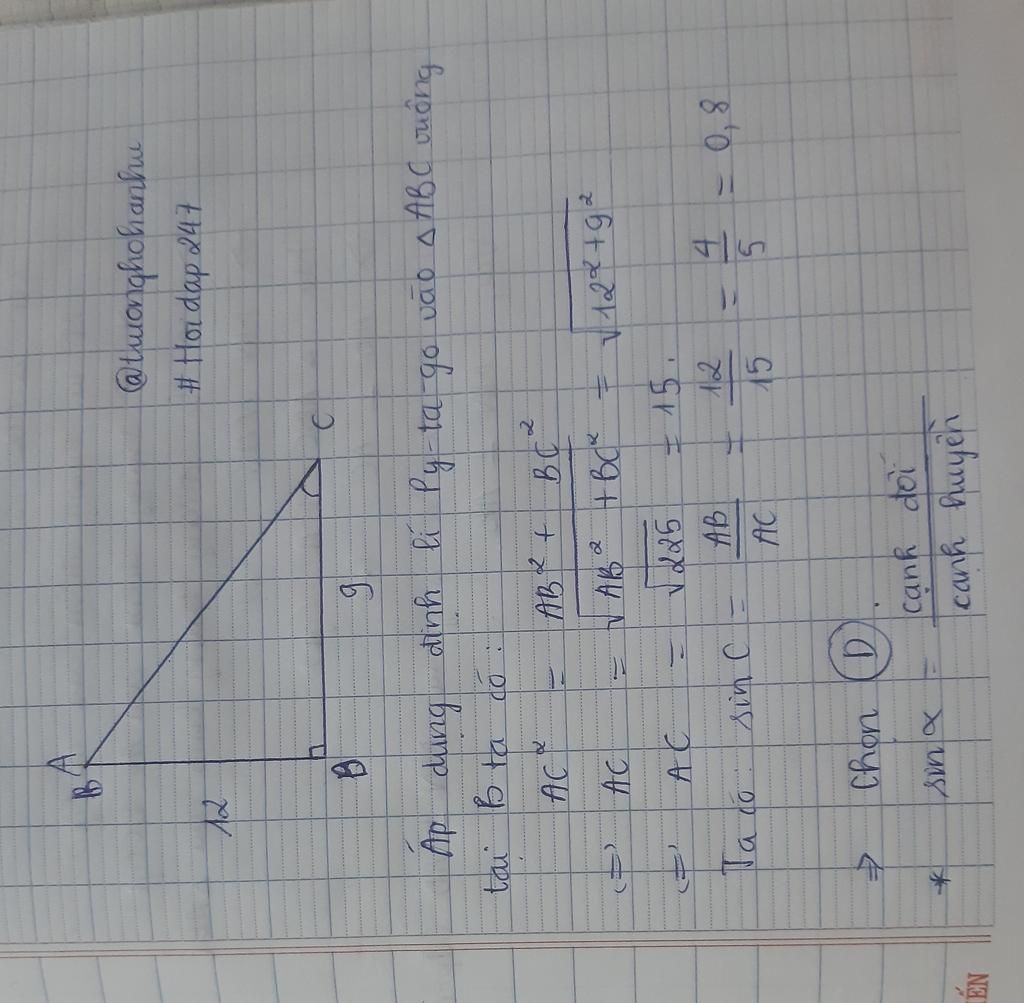 @tuonghohanhu
# Hoidap247
B A
12
B
9
C
Áp dụng định lí Py-ta-go vào △ABC vuông
tại B ta có:
AC² = AB² + BC²
⇔ AC = √AB² + BC² = √12² + 9²
⇔ AC = √225 = 15.
Ta có: sin C = AB/AC = 12/15 = 4/5 = 0,8
⇒ Chọn D.
* sin α = cạnh đối/cạnh huyền
ẾN